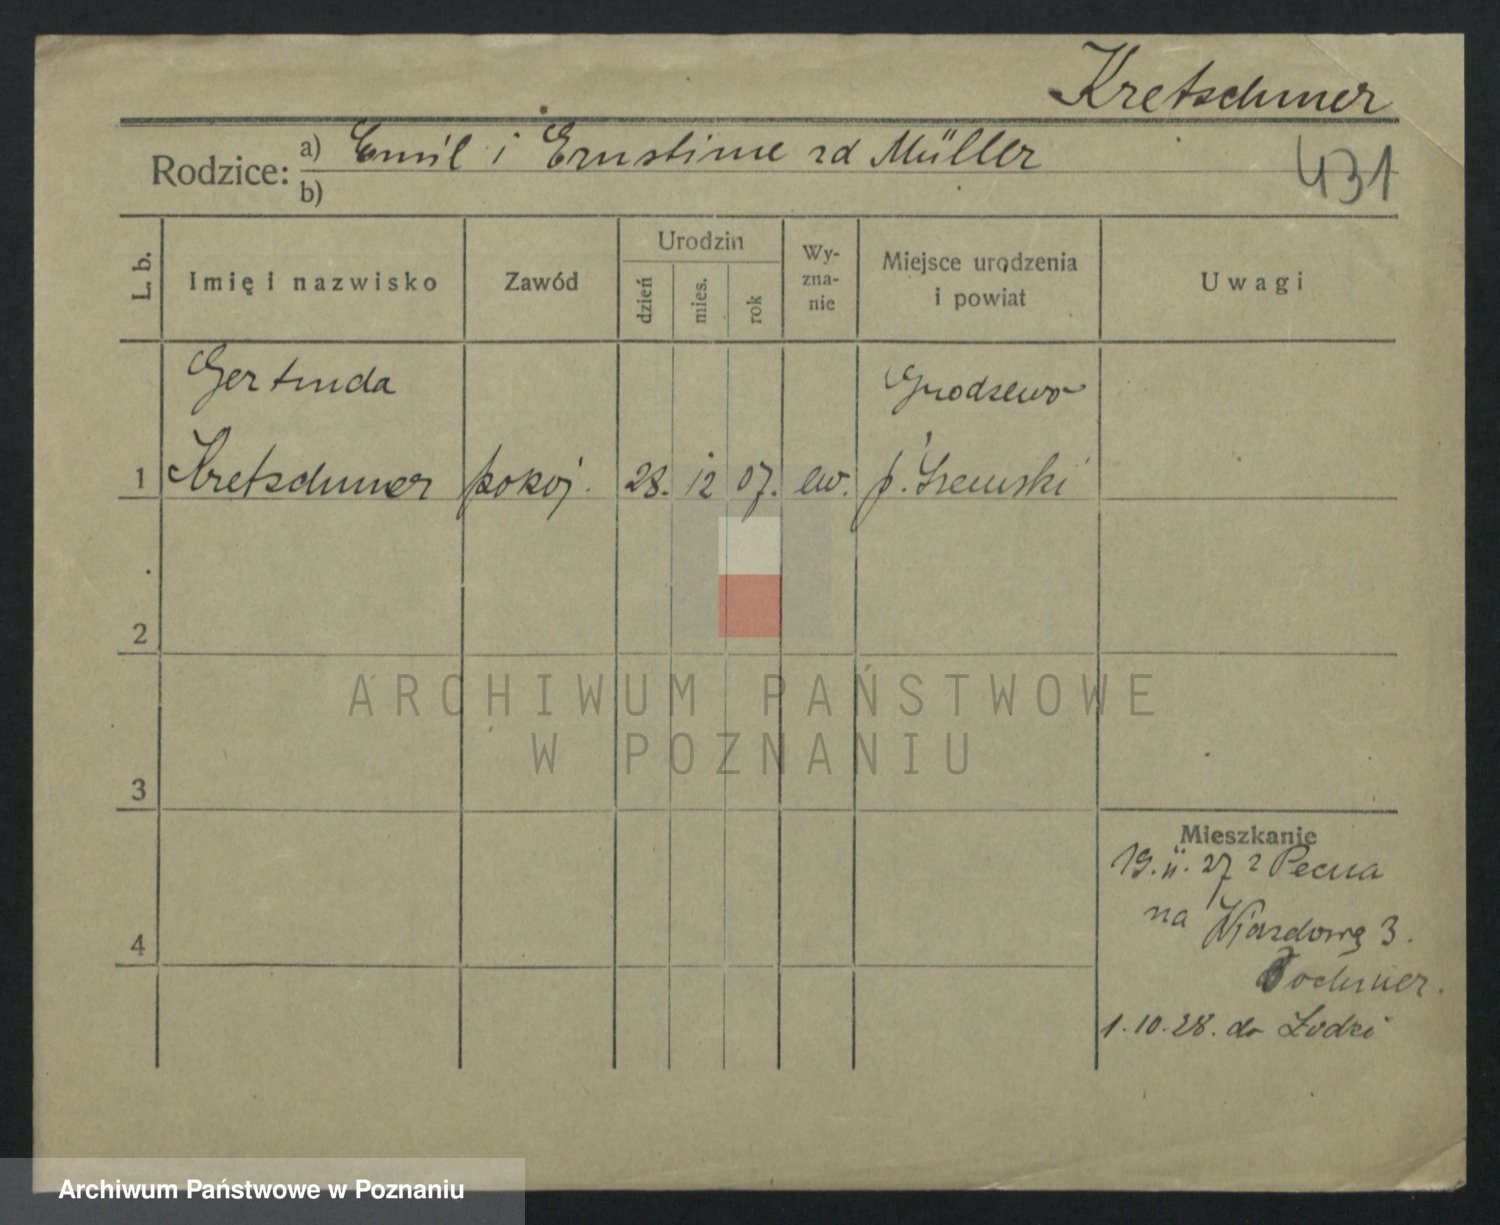 Kretschmer
Rodzice: a) Emil i Ernstine zd Müller
b)
431
L. b.
Imię i nazwisko
Zawód
Urodzin
dzień
mies.
rok
Wy-
zna-
nie
Miejsce urodzenia
i powiat
Uwagi
Gertruda
Grodzewo
1 Kretschmer pokoj. 28. 12 07. ew. p. Śremski
2
3
4
Mieszkanie
19. II. 27 z Pecna
na Wjazdową 3.
1. 10. 28. do Łodzi
ARCHIWUM PAŃSTWOWE
W POZNANIU
Archiwum Państwowe w Poznaniu